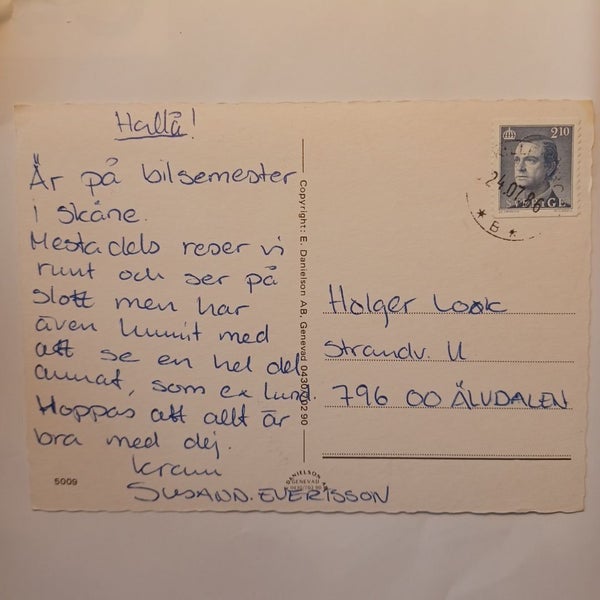 Hallå!
Är på bilsemester
i skåne.
Mestadels reser vi
runt och ser på
slott men har
även hunnit med
att se en hel del
annat, som ex lund.
Hoppas att allt är
bra med dej.
kram
SUSAND. EVERTSSON
5009
Copyright: E. Danielson AB, Genevad 0430/702 90
DANIELSON AB
GENEVAD
2.10
SVERIGE
24.07.86
* B *
Holger
Strandv. 11
796 00 ÄLVDALEN